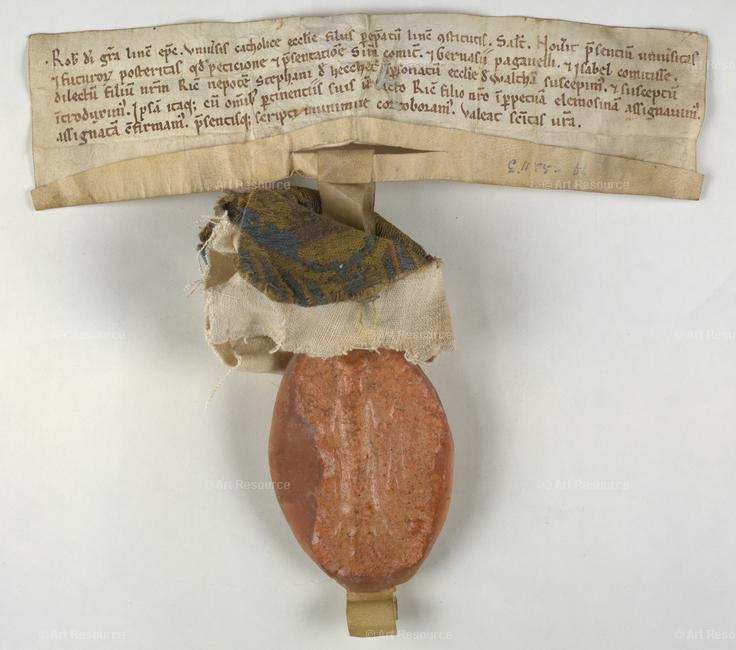 Rob' di gra linc' epc. Univsis catholice ecclie filiis ppetuum linc' gstitutis. Salt. Noverit psentium universitas
& futuror posteritas qd peticione & psentatioe Sim comit. & Gervasii paganelli. & Isabel comitisse.
dilectum filium nrm Ric nepote Stephani d' hecchet psonatum ecclie d' Walthā suscepim. & susceptum
ītroduxim. Ipsā itaq; cū omīb; ptinentiis suis dicto Ric filio nro ī ppetuā elemosinā assignavim.
assignatā cfirmam. psentisq; scripti munimine corroboram. Valeat scitas vra.
© Art Resource
© Art Resource
© Art Resource
© Art Resource
© Art Resource
© Art Resource
© Art Resource
© Art Resource
© Art Resource
© Art Resource
© Art Resource
© Art Resource